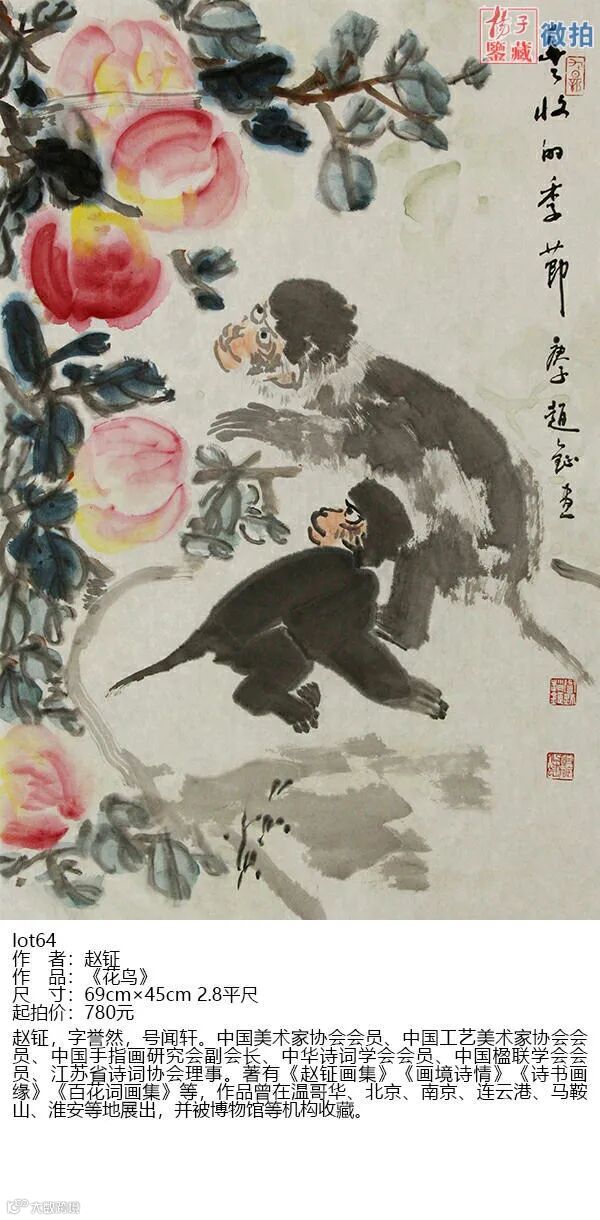 楊子
鑒藏
微拍
丰收的季節
庚子 趙鉦畫
lot64
作 者：赵钲
作 品：《花鸟》
尺 寸：69cm×45cm 2.8平尺
起拍价：780元
赵钲，字誉然，号闻轩。中国美术家协会会员、中国工艺美术家协会会
员、中国手指画研究会副会长、中华诗词学会会员、中国楹联学会会
员、江苏省诗词协会理事。著有《赵钲画集》《画境诗情》《诗书画
缘》《百花词画集》等，作品曾在温哥华、北京、南京、连云港、马鞍
山、淮安等地展出，并被博物馆等机构收藏。
大数跨境